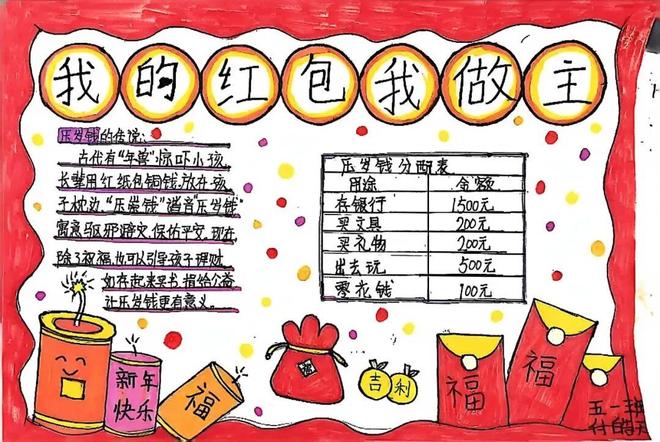 我的红包我做主
压岁钱的传说:
古代有“年兽”惊吓小孩,
长辈用红纸包铜钱,放在孩
子枕边,“压祟钱”谐音“压岁钱”
寓意驱邪避灾,保佑平安,现在,
除了祝福,也可以引导孩子理财,
如存起来,买书,捐给公益
让压岁钱更有意义。
压岁钱分配表
用途 金额
存银行 1500元
买文具 200元
买礼物 200元
出去玩 500元
零花钱 100元
新年
快乐
福
吉利
福
福
五一班